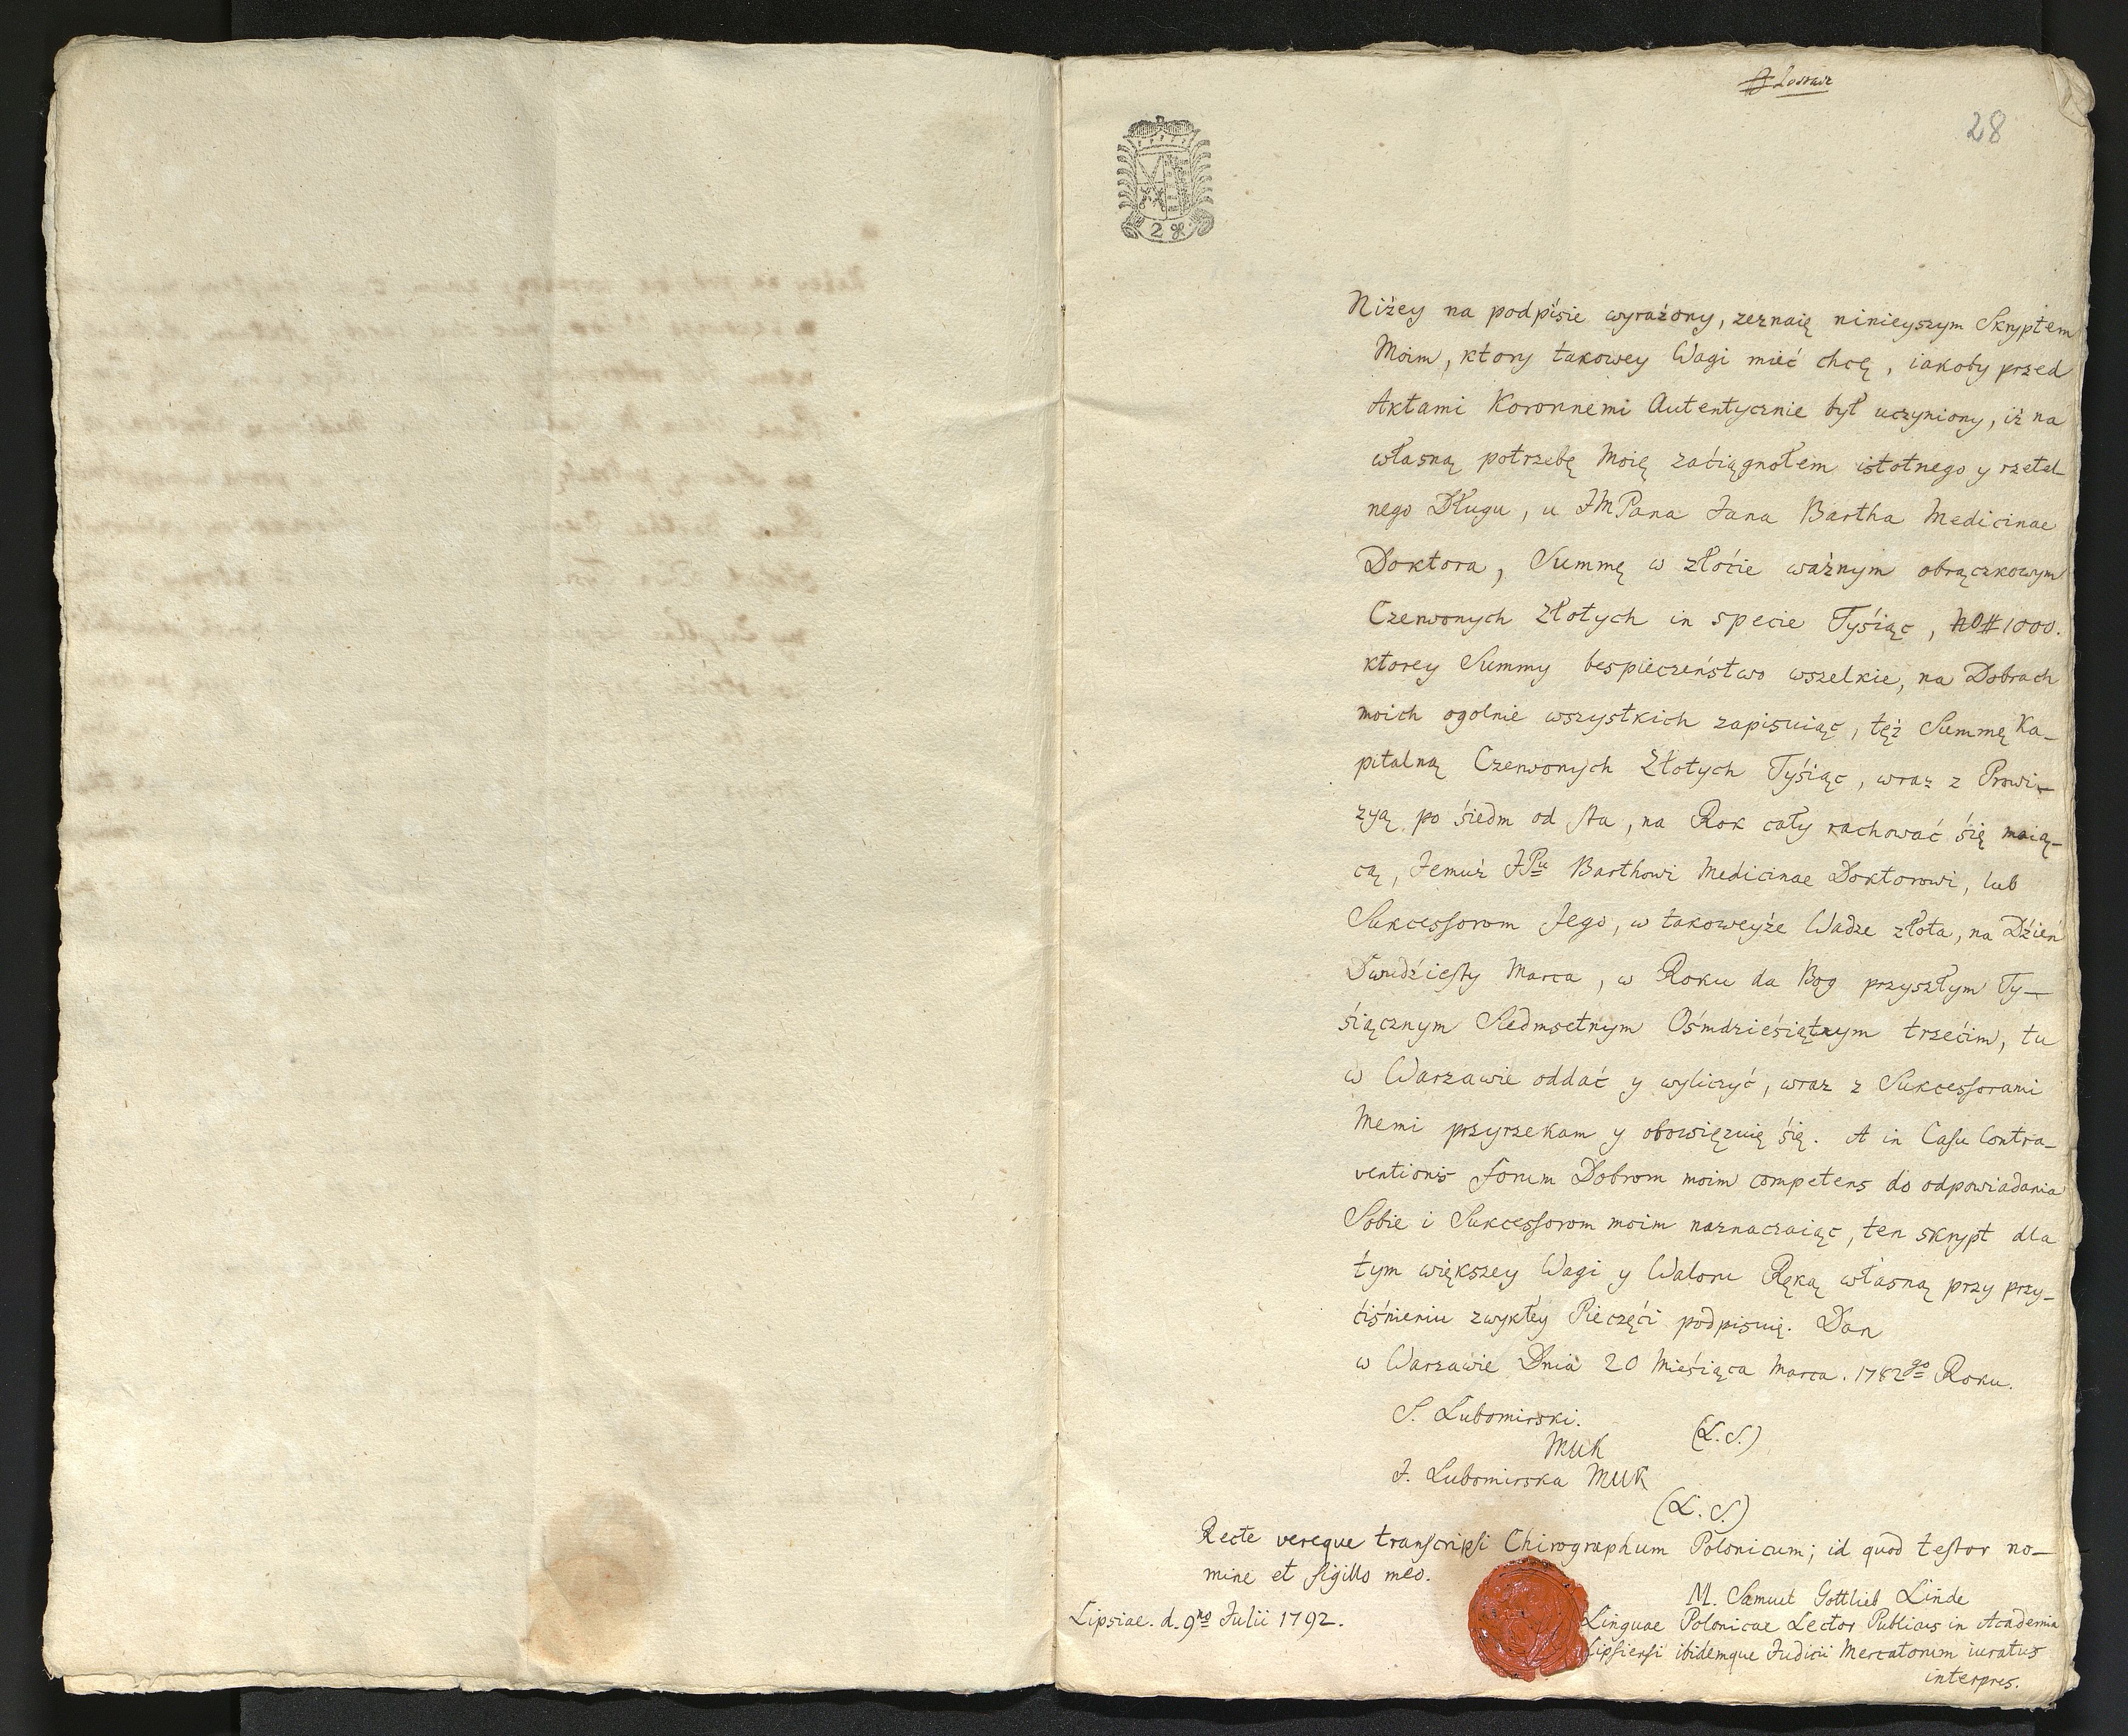 28
2
Niżey na podpisie wyrażony, zeznaię ninieyszym Skryptem
Moim, ktory takowey Wagi mieć chcę, iakoby przed
Aktami Koronnemi Autentycznie był uczyniony, iż na
własną potrzebę Moię zaćiągnołem istotnego y rzetel-
nego Długu, u JMPana Jana Bartha Medicinae
Doktora, Summę w złoćie ważnym obrączkowym
Czerwonych Złotych in specie Tyśiąc, No # 1000.
ktorey Summy bespieczeństwo wszelkie, na Dobrach
moich ogolnie wszystkich zapisuiąc, tęż Summę Ka-
pitalną Czerwonych Złotych Tyśiąc, wraz z Prowi-
zyą po śiedm od sta, na Rok cały rachować śię maią-
cą, Jemuż JPu Barthowi Medicinae Doktorowi, lub
Sukcessorom Jego, w takoweyże Wadze złota, na Dźień
Dwudźiesty Marca, w Roku da Bog przyszłym Ty-
śiącznym Siedmsetnym Ośmdzieśiątnym trzećim, tu
w Warzawie oddać y wyliczyć, wraz z Sukcessorami
Memi przyrzekam y obowięzuię śię. A in Casu Contra-
ventionis forum Dobrom moim competens do odpowiadania
Sobie i Sukcessorom moim naznaczaiąc, ten skrypt dla
tym większey Wagi y Waloru Ręką własną przy przy-
ćiśnieniu zwykłey Pieczęći podpisuię. Dan
w Warzawie Dnia 20 Mieśiąca Marca. 1782go Roku.
S. Lubomirski.
MUK (L.S.)
J. Lubomirska MUK
(L.S.)
Recte vereque transcripsi Chirographum Polonicum; id quod testor no-
mine et sigillo meo.
M. Samuel Gottlieb Linde
Lipsiae. d. 9no Julii 1792.
Linguae Polonicae Lector Publicus in Academia
Lipsiensi ibidemque Judicii Mercatorum iuratus
interpres.